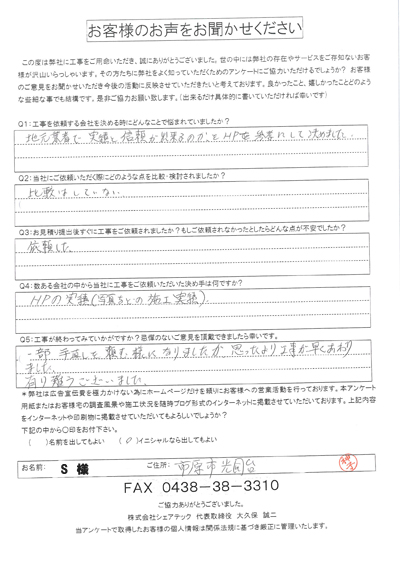 お客様のお声をお聞かせください
この度は弊社に工事をご用命いただき、誠にありがとうございました。世の中には弊社の存在やサービスをご存知ないお客
様が沢山いらっしゃいます。その方たちに弊社をよく知っていただくためのアンケートにご協力いただけるでしょうか？ お客様
のご意見をお聞かせいただき今後の活動に反映させていただきたいと考えております。良かったこと、嬉しかったことどのよう
な些細な事でも結構です。是非ご協力お願い致します。(出来るだけ具体的に書いていただければ幸いです)
Q1:工事を依頼する会社を決める時にどんなことで悩まれていましたか？
地元業者で実績と信頼が出来るのか、とHPを参考にして決めました。
Q2:当社にご依頼いただく際にどのような点を比較・検討されましたか？
比較はしていない
Q3:お見積り提出後すぐに工事をご依頼されましたか？もしご依頼されなかったとしたらどんな点が不安でしたか？
依頼した
Q4:数ある会社の中から当社に工事をご依頼いただいた決め手は何ですか？
HPの実績(写真などの施工実績)
Q5:工事が終わってみていかがですか？忌憚のないご意見を頂戴できましたら幸いです。
一部手直しを頼む様になりましたが思ったより工事が早くおわり
ました。
有り難うございました。
＊弊社は広告宣伝費を極力かけない為にホームページだけを頼りにお客様への営業活動を行っております。本アンケート
用紙またはお客様宅の調査風景や施工状況を随時ブログ形式のインターネットに掲載させていただいております。上記内容
をインターネットや印刷物に掲載させていただいてもよろしいでしょうか？
下記の中から〇印をお付下さい。
(　)名前を出してもよい　(〇)イニシャルなら出してもよい
お名前: S 様　ご住所: 市原市光風台
FAX 0438－38－3310
ご協力ありがとうございました。
株式会社シェアテック 代表取締役 大久保 誠二
当アンケートで取得したお客様の個人情報は関係法規に基づき厳正に管理いたします。